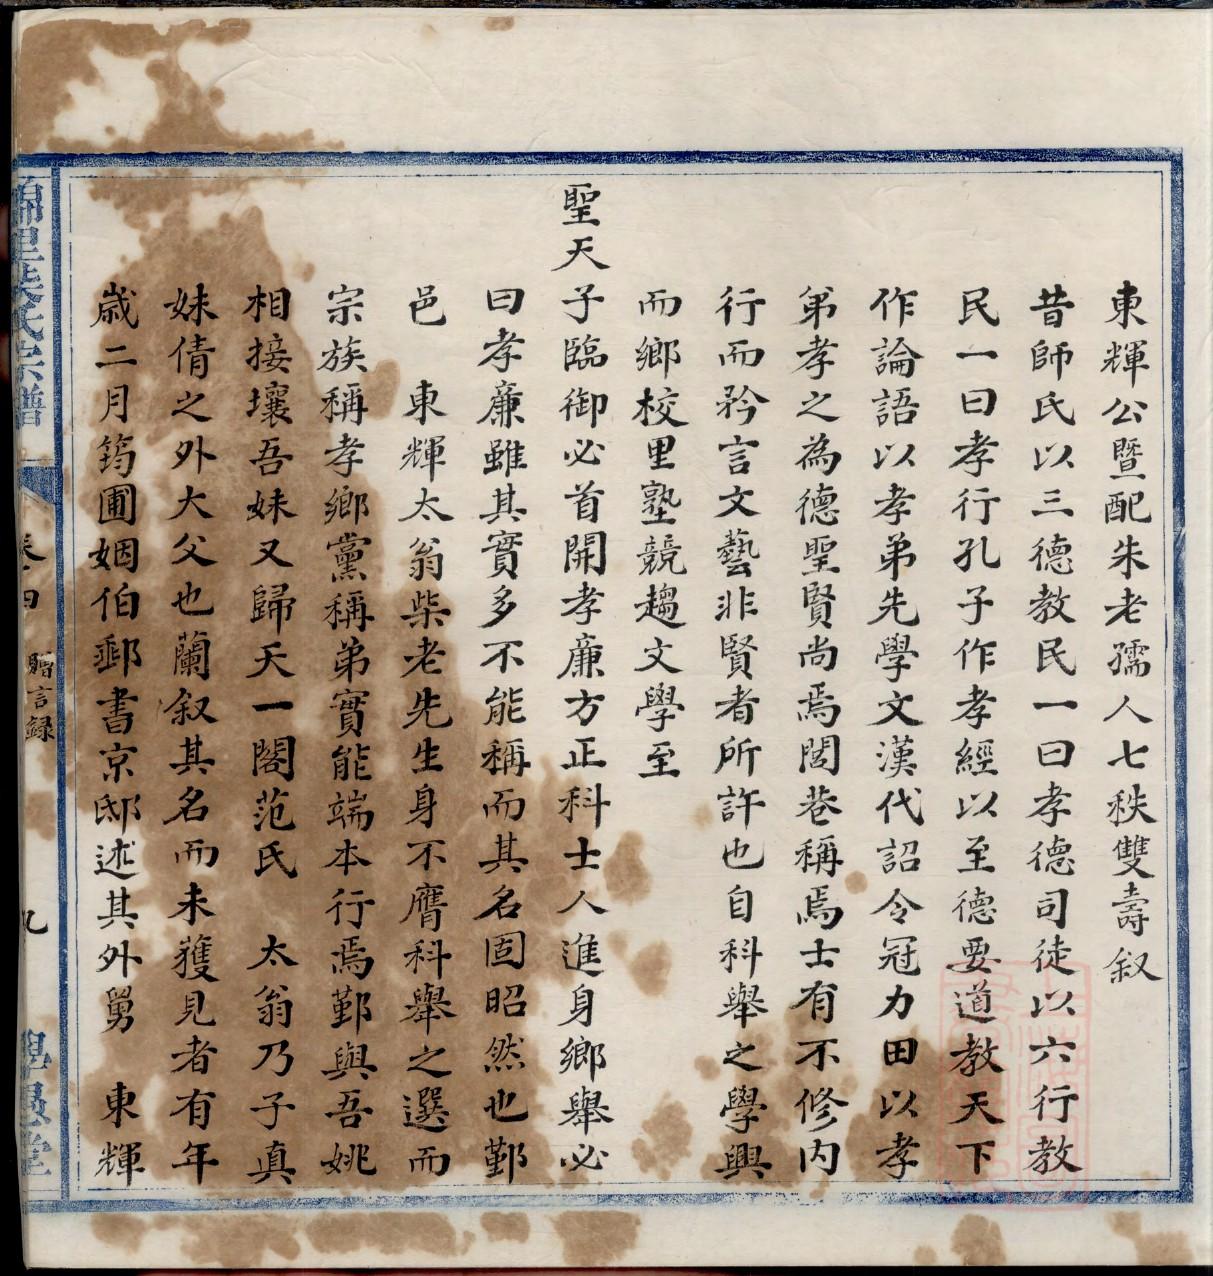 東輝公暨配朱老孺人七秩雙壽叙
昔師氏以三德教民一曰孝德司徒以六行教
民一曰孝行孔子作孝經以至德要道教天下
作論語以孝弟先學文漢代詔令冠力田以孝
弟孝之為德聖賢尚焉閭巷稱焉士有不修内
行而矜言文藝非賢者所許也自科舉之學興
而鄉校里塾競趨文學至
聖天子臨御必首開孝廉方正科士人進身鄉舉必
曰孝廉雖其實多不能稱而其名固昭然也鄞
邑　東輝太翁柴老先生身不膺科舉之選而
宗族稱孝鄉黨稱弟實能端本行焉鄞與吾姚
相接壤吾妹又歸天一閣范氏　太翁乃子真
妹倩之外大父也蘭叙其名而未獲見者有年
歲二月筠圃姻伯郵書京邸述其外舅　東輝
卷四
贈言録
九